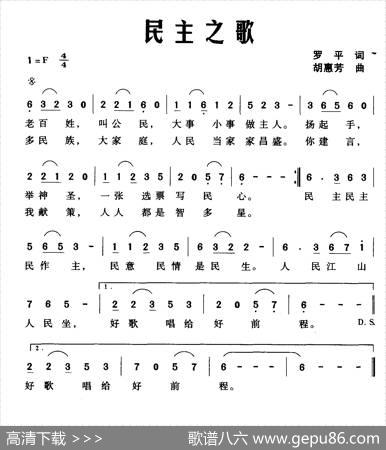 民主之歌
1=F 4/4
罗平 词
胡惠芳 曲
6 3 2 3 0 2 2 1 6 0 1 1 6 1 2 2 3 5 3 3 5 6 0
老百姓，叫公民，大事小事做主人。扬起手，
多民族，大家庭，人民当家家昌盛。你建言，
2 2 1 2 0 1 1 2 3 5 2 0 5 7 6 - - - :‖ 6 · 3 6 3
举神圣，一张选票写民心。民主民主
我献策，人人都是智多星。
5 6 5 3 - 1 1 2 3 5 2 2 3 5 6 - - - 6 · 3 6 7 i
民作主，民意民情是民生。人民江山
1.
7 6 5 - 2 2 3 5 3 2 0 5 7 6 - - -
人民坐，好歌唱给好前程。D.S.
2.
2 2 3 5 3 2 0 5 7 6 - - - 6 - - - 6 0 0 0 ‖
好歌唱给好前程。
高清下载 >>>
歌谱八六 www.gepu86.com